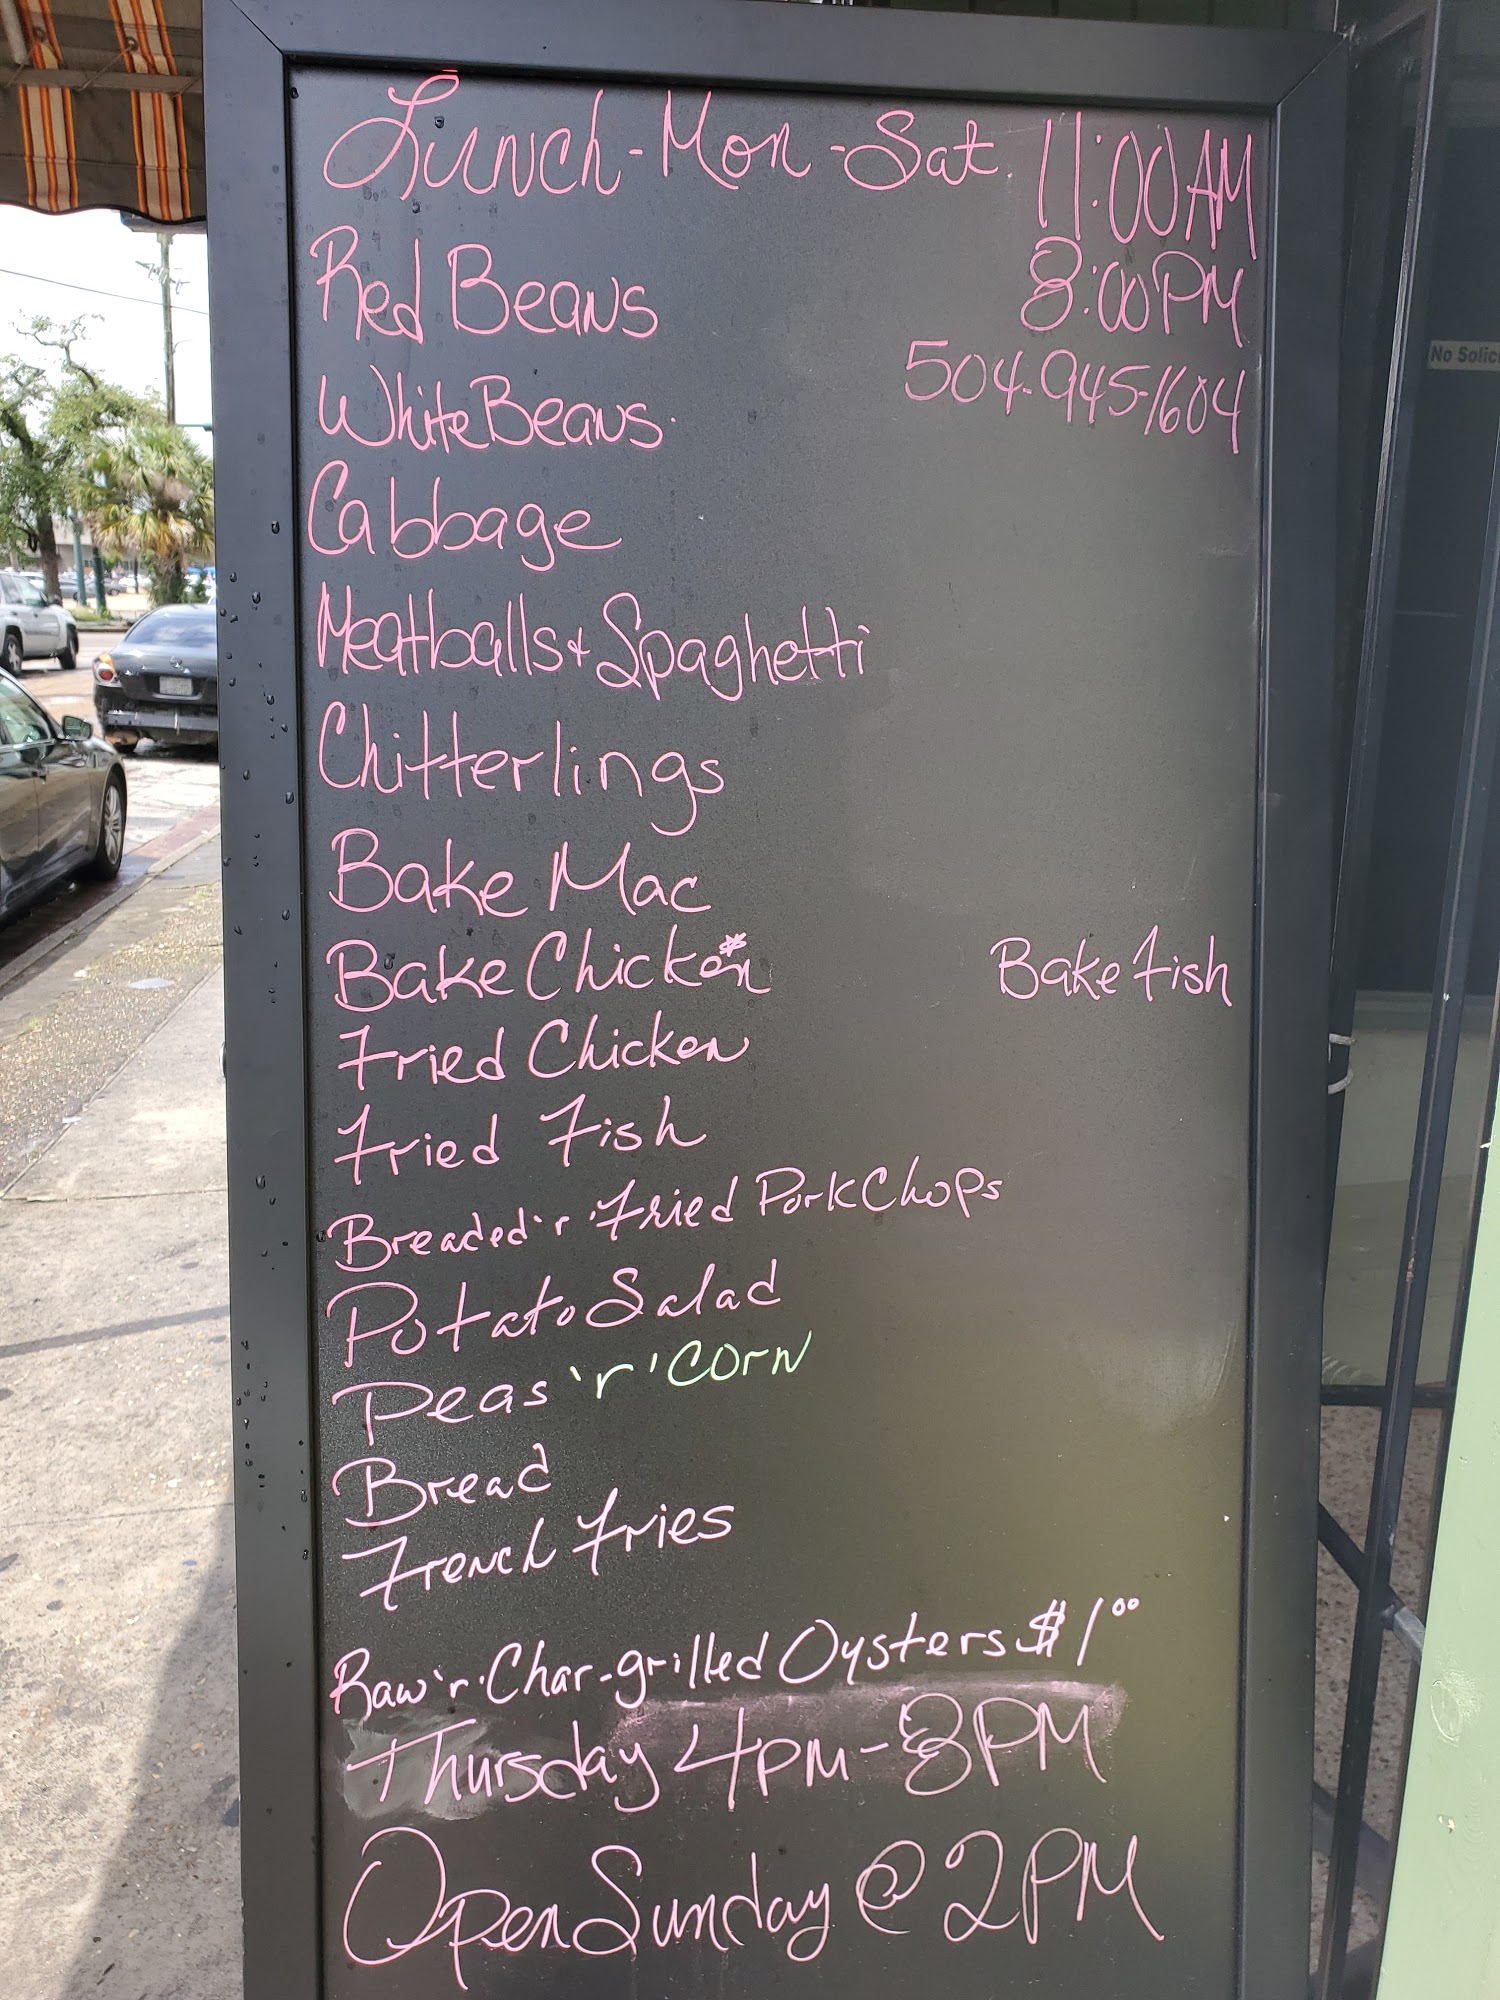 Lunch-Mon-Sat 11:00AM
8:00PM
Red Beans
504-945-1604
White Beans
Cabbage
Meatballs + Spaghetti
Chitterlings
Bake Mac
Bake Chicken* Bake Fish
Fried Chicken
Fried Fish
Breaded 'r' Fried Pork Chops
Potato Salad
Peas 'r' Corn
Bread
French Fries
Raw 'r' Char-grilled Oysters $1.00
Thursday 4PM-8PM
Open Sunday @ 2PM
No Solic